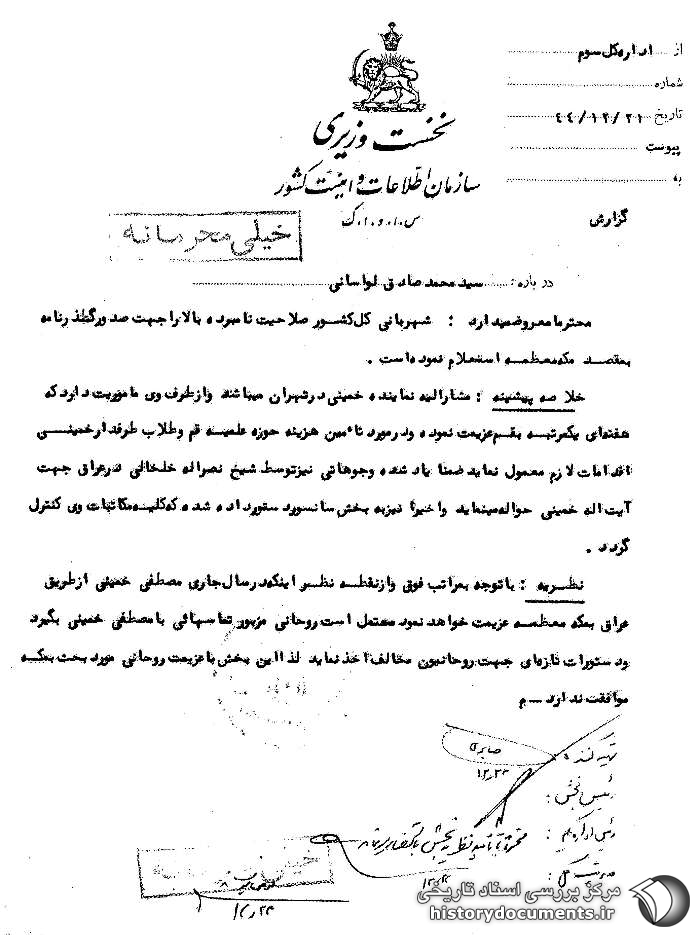 از ..... اداره کل سوم
شماره
تاریخ ۴۴/۱۲/۲۱
پیوست
به
نخست وزیری
سازمان اطلاعات و امنیت کشور
س.ا.و.ا.ک
گزارش
خیلی محرمانه
درباره : سید محمد صادق لواسانی
محترما معروضمیدارد : شهربانی کل کشور صلاحیت نامبرده بالا را جهت صدور گذرنامه
بمقصد مکه معظمه استعلام نموده است .
خلاصه پیشینه : مشارالیه نماینده خمینی در شهران میباشد و از طرف وی ماموریت دارد که
هفته‌ای یکمرتبه بقم عزیمت نموده و در مورد تامین هزینه حوزه علمیه قم و طلاب طرفدار خمینی
اقدامات لازم معمول نماید ضمنا یاد شده وجوهاتی نیز توسط شیخ نصراله خلخالی در عراق جهت
آیت اله خمینی حواله مینماید و اخیرا نیز به بخش سانسور دستور داده شده که کلیه مکاتبات وی کنترل
گردد .
نظریه : با توجه بمراتب فوق و از نقطه نظر اینکه در سال جاری مصطفی خمینی از طریق
عراق بمکه معظمه عزیمت خواهد نمود محتمل است روحانی مزبور تماسهائی با مصطفی خمینی بگیرد
و دستورات تازه‌ای جهت روحانیون مخالف اخذ نماید لذا این بخش با عزیمت روحانی مورد بحث بمکه
موافقت ندارد – م
تهیه کننده : صابری
۱۲/۲۳
رئیس بخش :
رئیس اداره یکم :
۱۲/۲۳
خیلی محرمانه
۱۲/۲۳
مرکز بررسی اسناد تاریخی
historydocuments.ir